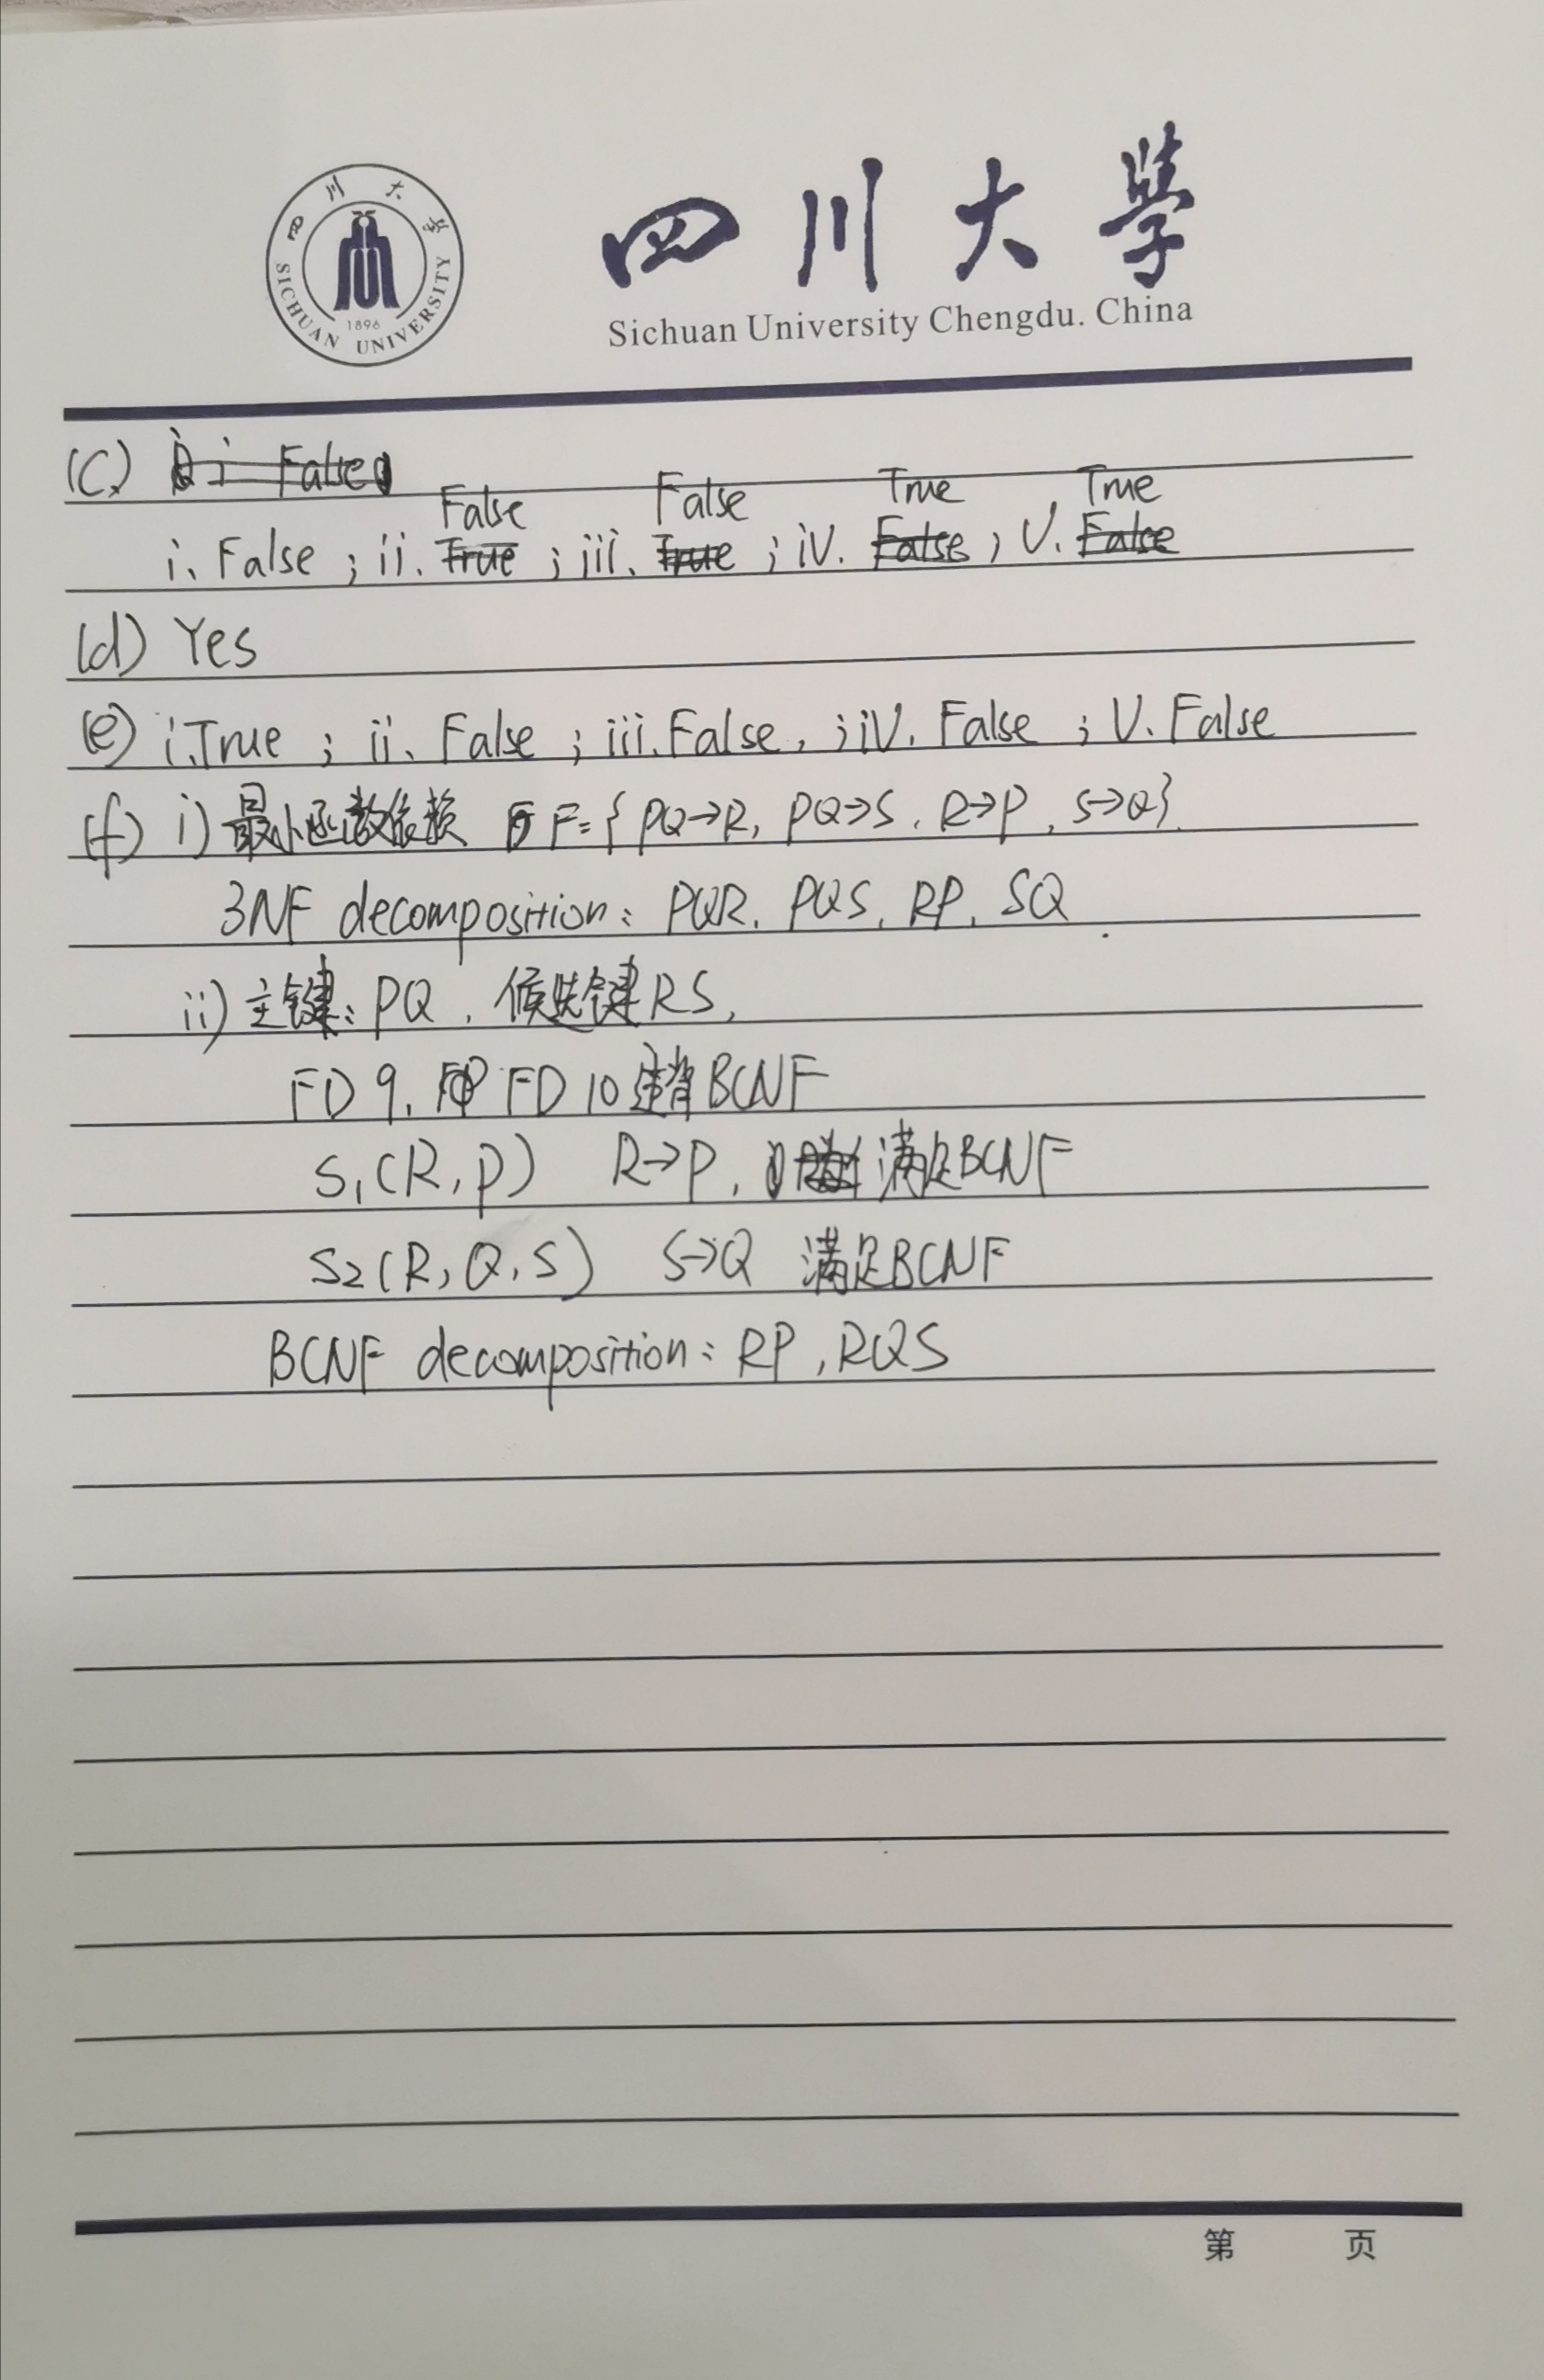 四川大學
SICHUAN UNIVERSITY
1896
四川大學
Sichuan University Chengdu. China
(C)
False False True True
i. False ; ii. True ; iii. True ; iV. False ; V. False
(d) Yes
(e) i.True ; ii. False ; iii.False. ; iV. False ; V.False
(f) i) 最小函数依赖 F={ PQ→R, PQ→S, R→P, S→Q}.
3NF decomposition: PQR. PQS. RP. SQ
ii) 主键: PQ , 候选键RS,
FD 9. FD 10 违背BCNF
S1(R,P) R→P, 满足BCNF
S2(R,Q,S) S→Q 满足BCNF
BCNF decomposition: RP,RQS
第 页